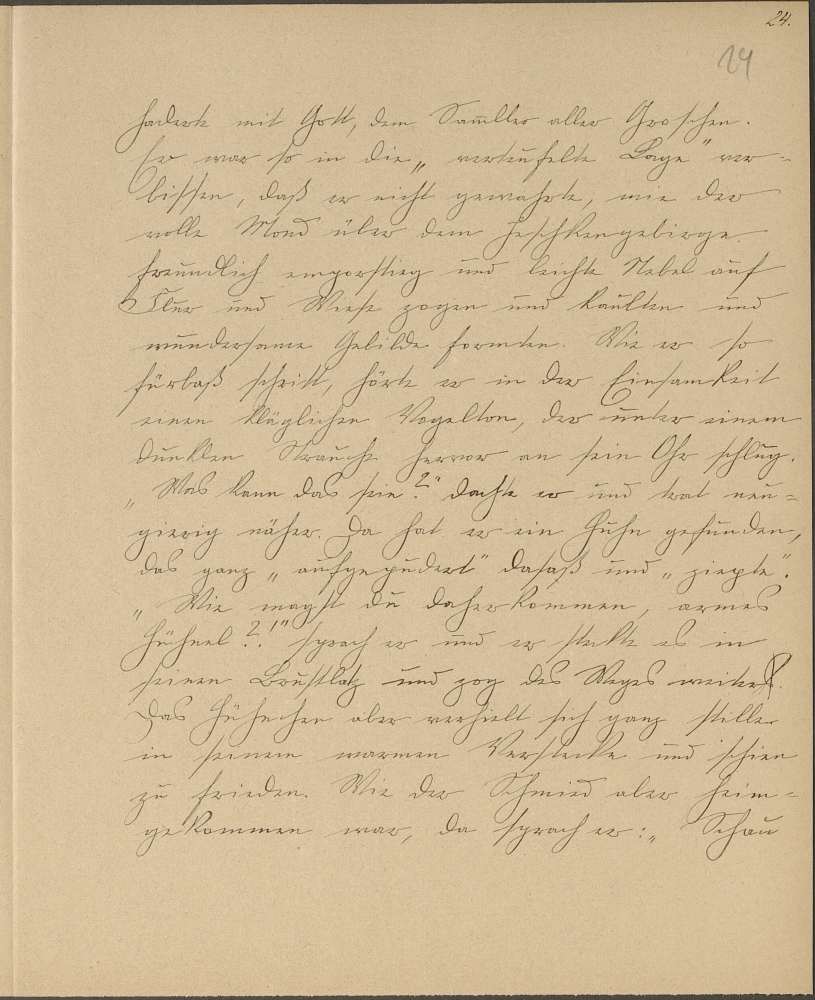 24.
24
haderte mit Gott, dem Sammler aller Groschen.
Er war so in die „verteufelte Lage" ver-
bissen, daß er nicht gewahrte, wie der
volle Mond über dem Jeschkengebirge
freundlich emporstieg und leichte Nebel auf
Flur und Wiese zogen und
wundersame Gebilde formten. Wie er so
fürbaß schritt, hörte er in der Einsamkeit
einen kläglichen Vogelton, der unter einem
dunklen Strauche hervor an sein Ohr schlug.
„Was kann das sein?" dachte er und trat neu-
gierig näher. Da hat er ein Huhn gefunden,
das ganz „aufgepudert" dasaß und „ziepte".
„Wie magst du daherkommen, armes
Hühnel?!" sprach er und er steckte es in
seinen Brustlatz und zog des Weges weiter.
Das Hühnchen aber verhielt sich ganz stille
in seinem warmen Verstecke und schien
zu frieden. Wie der Schmied aber heim-
gekommen war, da sprach er: „Schau